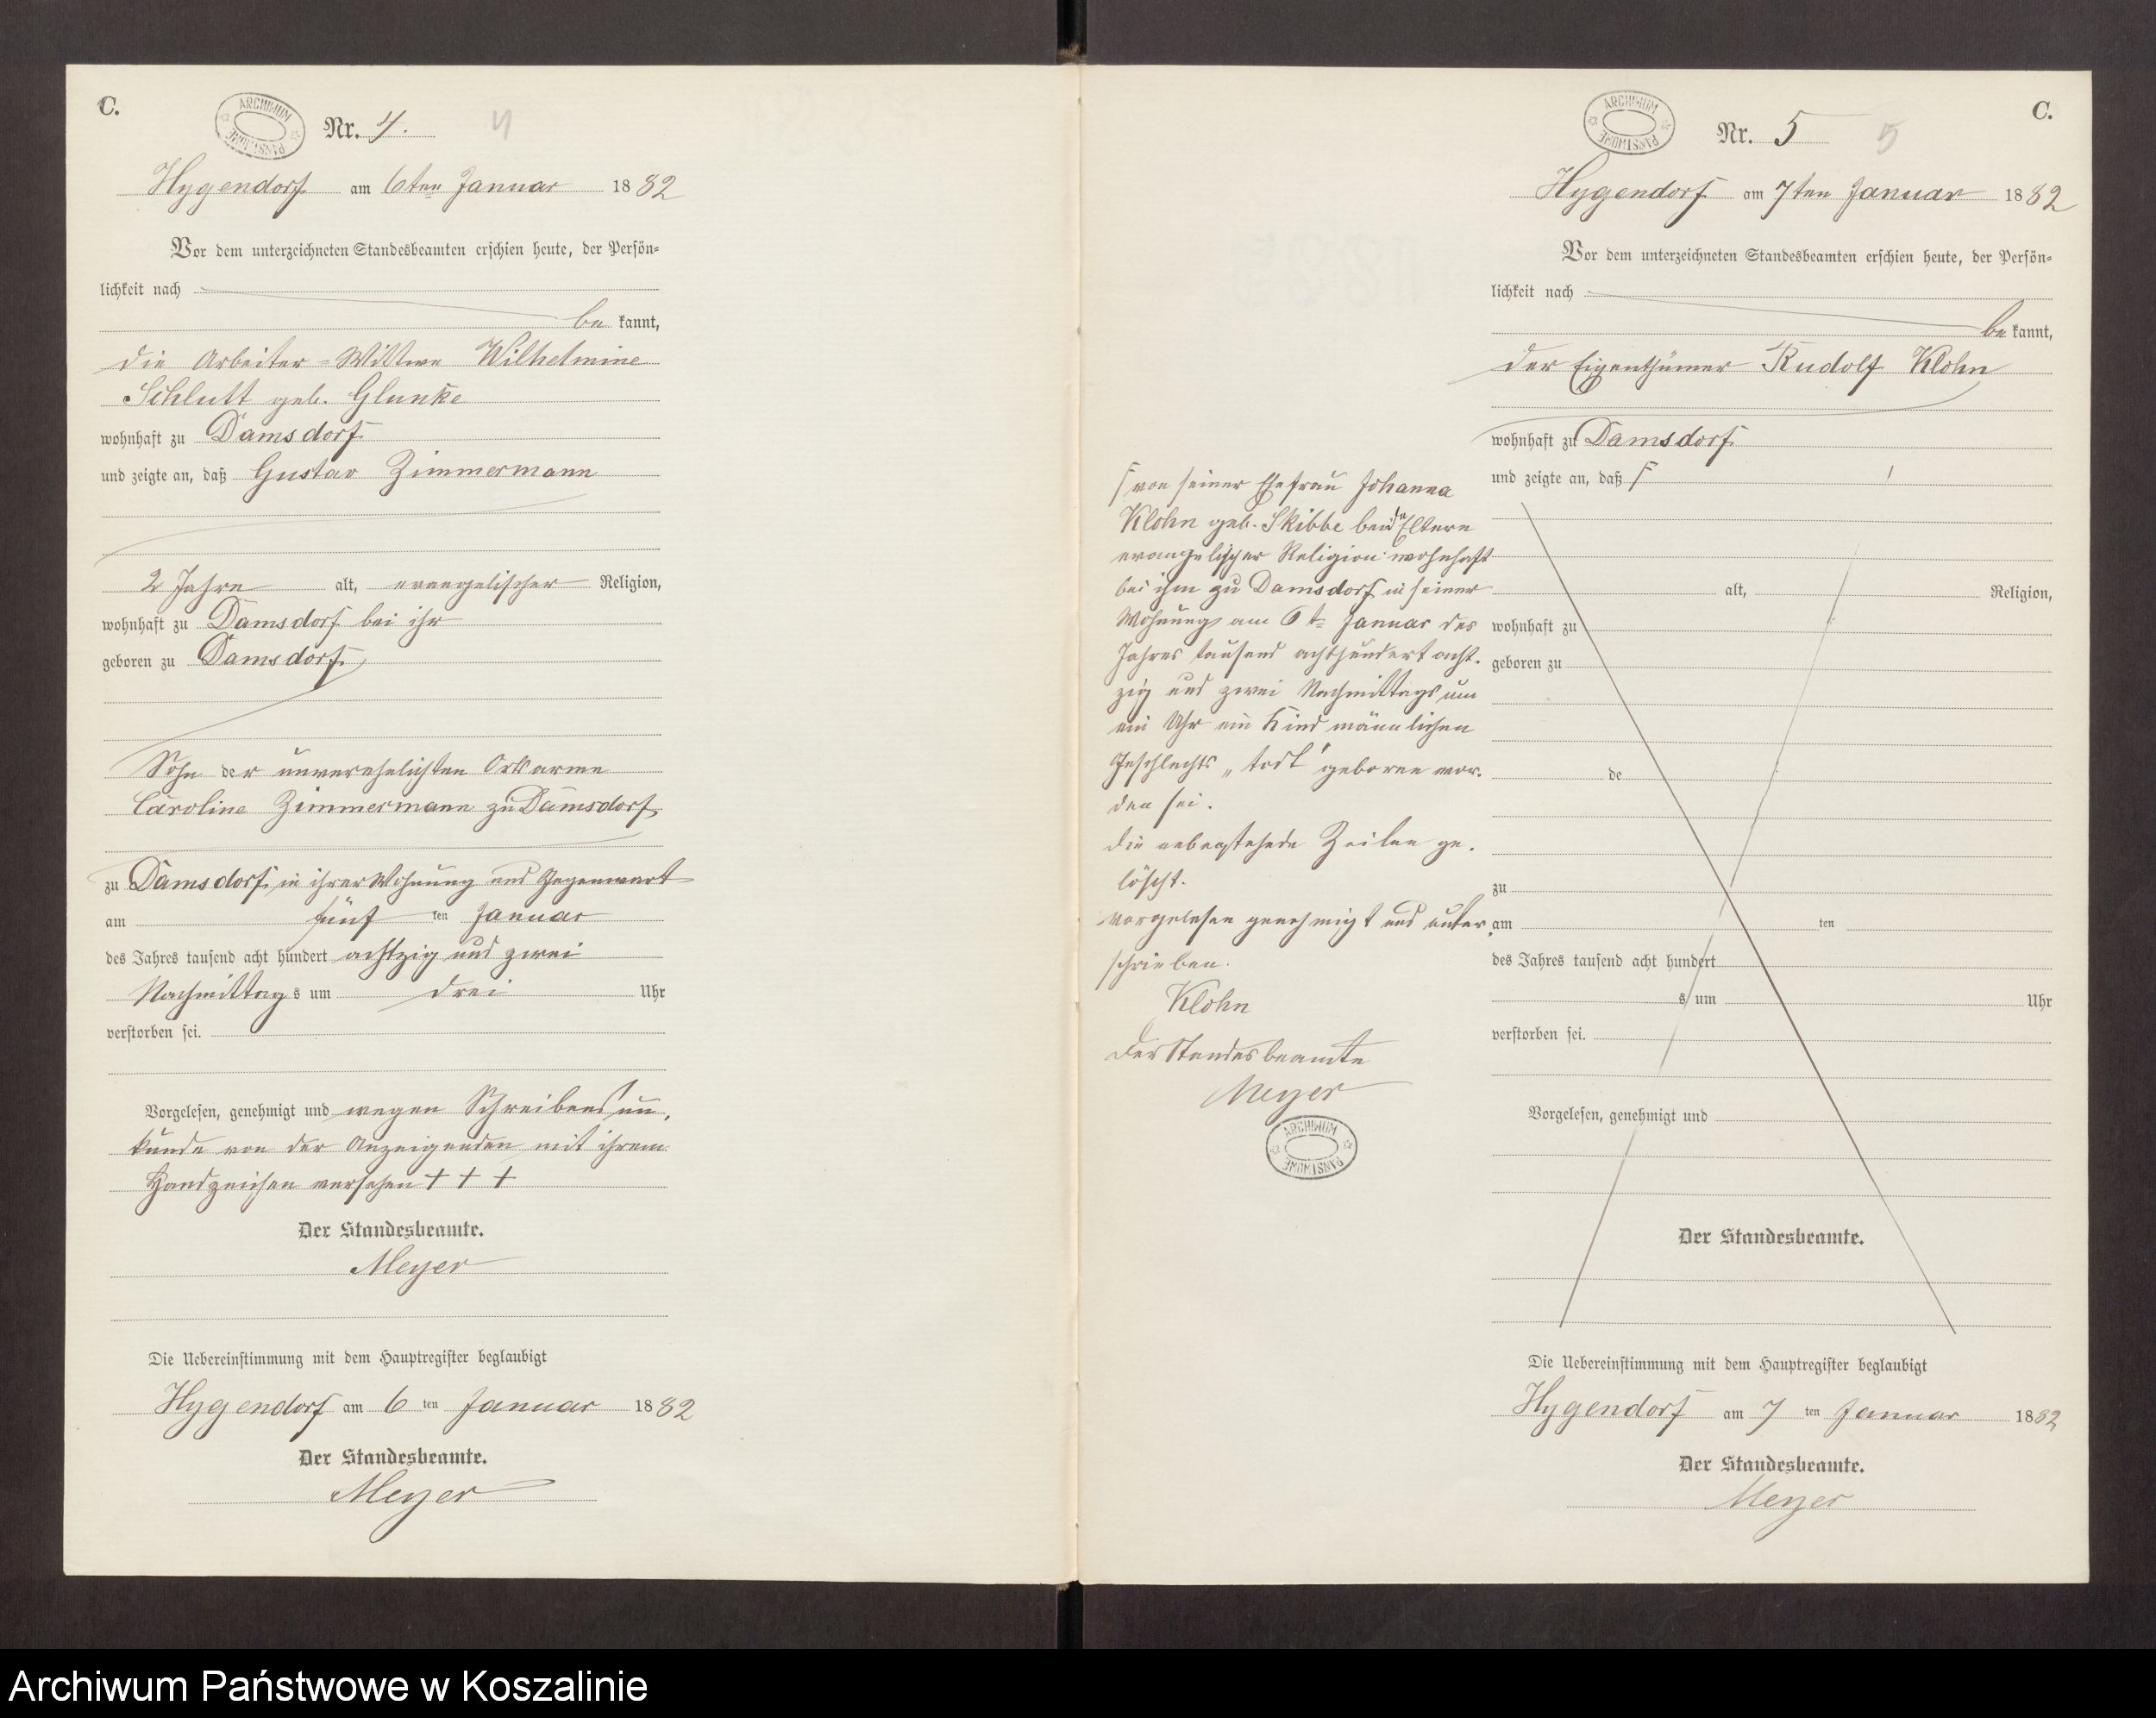 C.
ARCHIWUM PAŃSTWOWE
Nr. 4. 4
Hygendorf am 6ten Januar 1882
Vor dem unterzeichneten Standesbeamten erschien heute, der Persön-
lichkeit nach
be kannt,
die Arbeiter-Wittwe Wilhelmine
Schlutt geb. Glunke
wohnhaft zu Damsdorf
und zeigte an, daß Gustav Zimmermann
2 Jahre alt, evangelischer Religion,
wohnhaft zu Damsdorf bei ihr
geboren zu Damsdorf
Sohn der unverehelichten Ortsarme
Caroline Zimmermann zu Damsdorf
zu Damsdorf in ihrer Wohnung und Gegenwart
am fünf ten Januar
des Jahres tausend acht hundert achtzig und zwei
Nachmittags um drei Uhr
verstorben sei.
Vorgelesen, genehmigt und wegen Schreibens un.
kunde von der Anzeigenden mit ihrem
Handzeichen versehen + + +
Der Standesbeamte.
Meyer
Die Uebereinstimmung mit dem Hauptregister beglaubigt
Hygendorf am 6 ten Januar 1882
Der Standesbeamte.
Meyer
C.
ARCHIWUM PAŃSTWOWE
Nr. 5 5
Hygendorf am 7ten Januar 1882
Vor dem unterzeichneten Standesbeamten erschien heute, der Persön-
lichkeit nach
be kannt,
der Eigenthümer Rudolf Klohn
wohnhaft zu Damsdorf
und zeigte an, daß
von seiner Ehefrau Johanna
Klohn geb. Skibbe beide Eltern
evangelischer Religion wohnhaft
bei ihm zu Damsdorf in seiner
Wohnung am 6t Januar des
Jahres tausend achthundert acht.
zig und zwei Nachmittags um
ein Uhr ein Kind männlichen
Geschlechts „todt" geboren wor.
den sei.
die nebenstehende Zeilen ge.
löscht.
vorgelesen genehmigt und unter.
schrieben.
Klohn
Der Standesbeamte
Meyer
ARCHIWUM PAŃSTWOWE
alt, Religion,
wohnhaft zu
geboren zu
de
zu
am ten
des Jahres tausend acht hundert
s um Uhr
verstorben sei.
Vorgelesen, genehmigt und
Der Standesbeamte.
Die Uebereinstimmung mit dem Hauptregister beglaubigt
Hygendorf am 7 ten Januar 1882
Der Standesbeamte.
Meyer
Archiwum Państwowe w Koszalinie